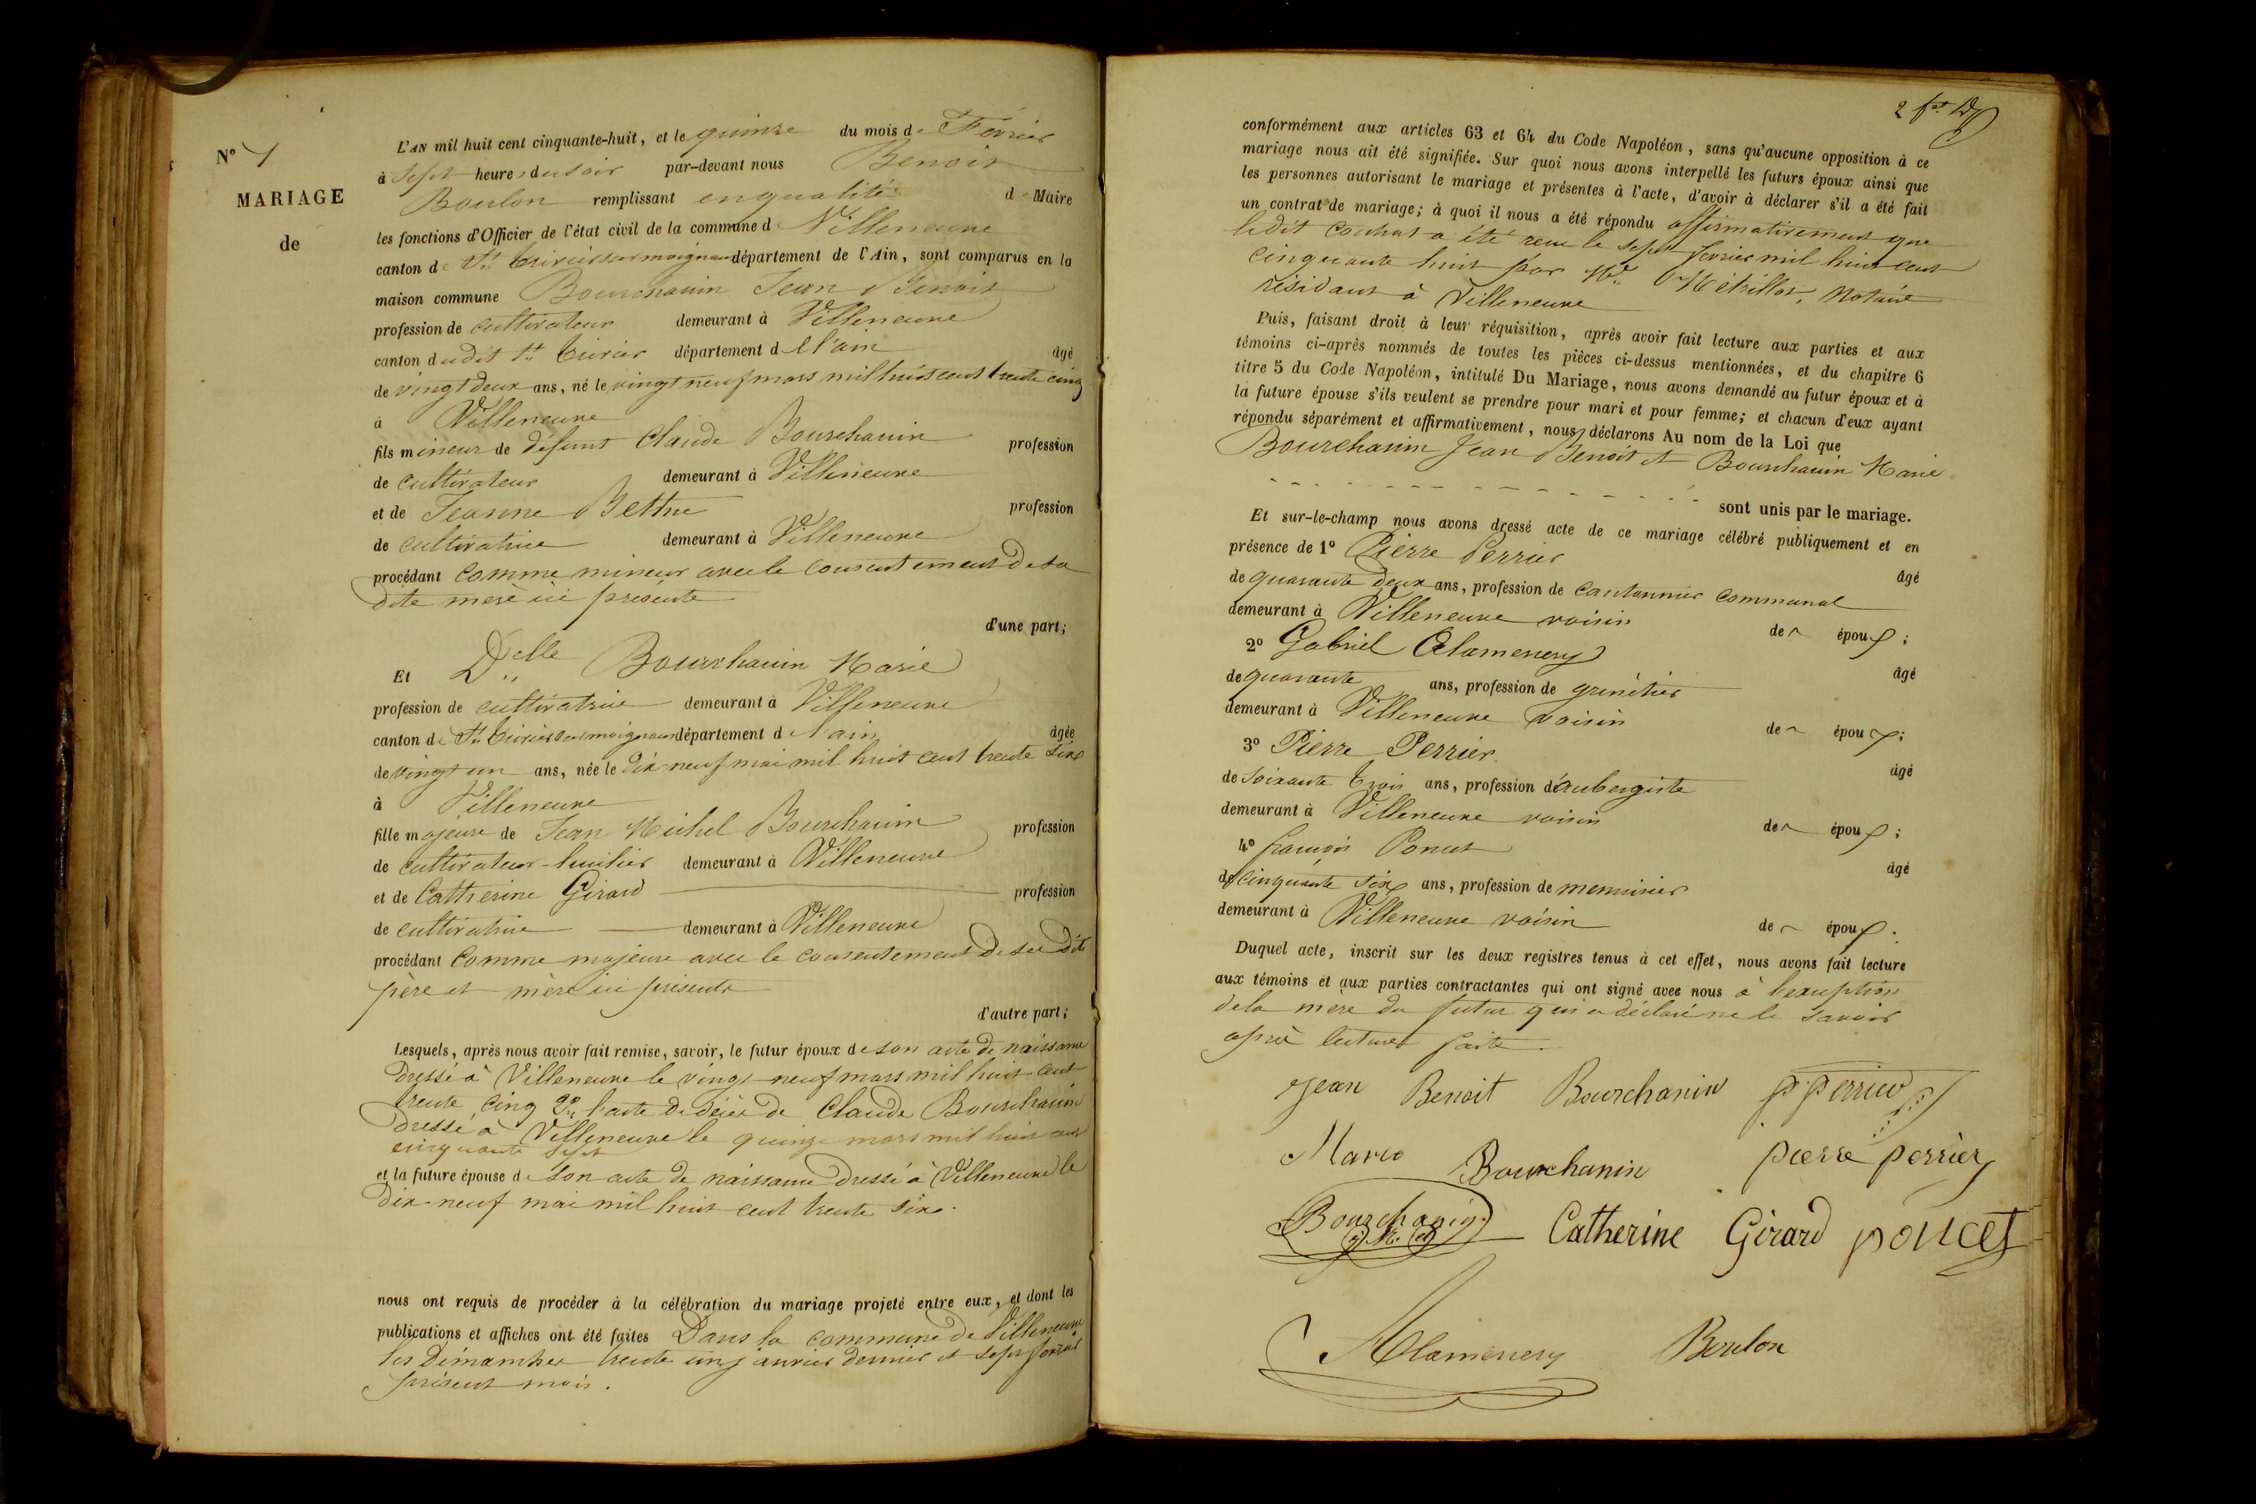 N° 1
MARIAGE
de
L'AN mil huit cent cinquante-huit, et le quinze du mois de Février
à sept heures du soir par-devant nous Benoit
Boulon remplissant en qualité de Maire
les fonctions d'Officier de l'état civil de la commune de Villeneuve
canton de St Trivier sur moignans département de l'Ain, sont comparus en la
maison commune Bourchanin Jean Benoit
profession de cultivateur demeurant à Villeneuve
canton dudit St Trivier département de l'ain âgé
de vingt deux ans, né le vingt neuf mars mil huit cent trente cinq
à Villeneuve
fils mineur de défunt Claude Bourchanin profession
de cultivateur demeurant à Villeneuve
et de Jeanne profession
de cultivatrice demeurant à Villeneuve
procédant comme mineur avec le consentement de sa
dite mère ici présente
d'une part;
Et Delle Bourchanin Marie
profession de cultivatrice demeurant à Villeneuve
canton de St Trivier sur moignans département de l'ain âgée
de vingt un ans, née le dix neuf mai mil huit cent trente six
à Villeneuve
fille majeure de Jean Michel Bourchanin profession
de cultivateur-huilier demeurant à Villeneuve
et de Catherine Girard profession
de cultivatrice demeurant à Villeneuve
procédant comme majeure avec le consentement de ses dits
père et mère ici présents
d'autre part;
Lesquels, après nous avoir fait remise, savoir, le futur époux de son acte de naissance
dressé à Villeneuve le vingt neuf mars mil huit cent
trente cinq 2° l'acte de décès de Claude Bourchanin
dressé à Villeneuve le quinze mars mil huit cent
cinquante sept
et la future épouse de son acte de naissance dressé à Villeneuve le
dix-neuf mai mil huit cent trente six.
nous ont requis de procéder à la célébration du mariage projeté entre eux, et dont les
publications et affiches ont été faites Dans la commune de Villeneuve
les Dimanches trente un janvier dernier et sept février
présent mois.
conformément aux articles 63 et 64 du Code Napoléon, sans qu'aucune opposition à ce
mariage nous ait été signifiée. Sur quoi nous avons interpellé les futurs époux ainsi que
les personnes autorisant le mariage et présentes à l'acte, d'avoir à déclarer s'il a été fait
un contrat de mariage; à quoi il nous a été répondu affirmativement que
ledit contrat a été reçu le sept février mil huit cent
cinquante huit par Me Métrillot, Notaire
résidant à Villeneuve
Puis, faisant droit à leur réquisition, après avoir fait lecture aux parties et aux
témoins ci-après nommés de toutes les pièces ci-dessus mentionnées, et du chapitre 6
titre 5 du Code Napoléon, intitulé Du Mariage, nous avons demandé au futur époux et à
la future épouse s'ils veulent se prendre pour mari et pour femme; et chacun d'eux ayant
répondu séparément et affirmativement, nous déclarons Au nom de la Loi que
Bourchanin Jean Benoit et Bourchanin Marie
sont unis par le mariage.
Et sur-le-champ nous avons dressé acte de ce mariage célébré publiquement et en
présence de 1° Pierre Perrier âgé
de quarante deux ans, profession de cantonnier communal
demeurant à Villeneuve voisin des époux;
2° Gabriel Clamerery âgé
de quarante ans, profession de grinétier
demeurant à Villeneuve voisin des époux;
3° Pierre Perrier âgé
de soixante trois ans, profession d'aubergiste
demeurant à Villeneuve voisin des époux;
4° françois Poncet âgé
de cinquante six ans, profession de menuisier
demeurant à Villeneuve voisin des époux.
Duquel acte, inscrit sur les deux registres tenus à cet effet, nous avons fait lecture
aux témoins et aux parties contractantes qui ont signé avec nous à l'exception
de la mère du futur qui a déclaré ne le savoir
après lecture faite.
Jean Benoit Bourchanin p perrier
Marie Bourchanin pierre perrier
Bourchanin Catherine Girard poncet
Boulon